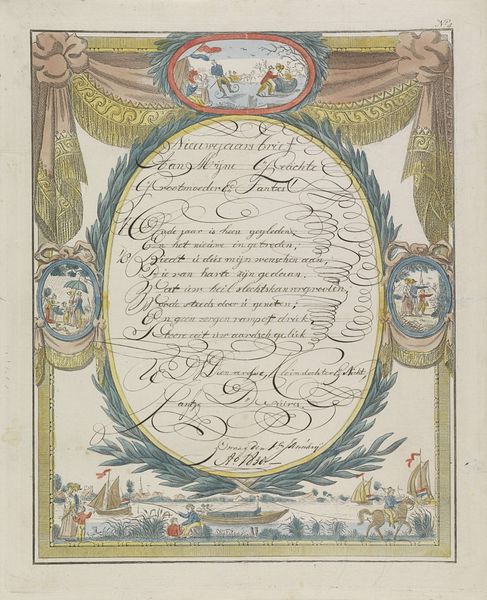 No
Nieuwejaars brief
Aan Mijne Geliefde
Grootmoeder & Tantes
Oude jaar is heen gegleden,
En het nieuwe in getreden,
Biedt u dus mijn wenschen aan,
Die van harte zijn gedaan.
Wat uw heil slechts kan vergrooten,
Worde steeds door u genoten;
En geen zorgen ramp of druk
Stoore ooit uw aardsch geluk
U D. Dienardse, Kleindochter & Nicht,
den 1en January
Ao 1830